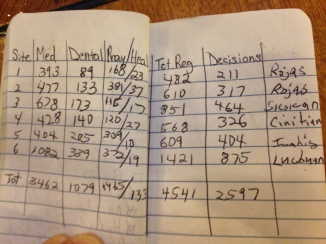 Site Med Dental Pray/Hea Tot Reg Decisions
1 393 89 168/23 482 211 Rojas
2 477 133 381/37 610 317 Rojas
3 678 173 115/17 851 464
4 428 140 120/27 568 326
5 404 205 309/10 609 404
6 1082 339 372/19 1421 875
Tot 3462 1079 1465/133 4541 2597